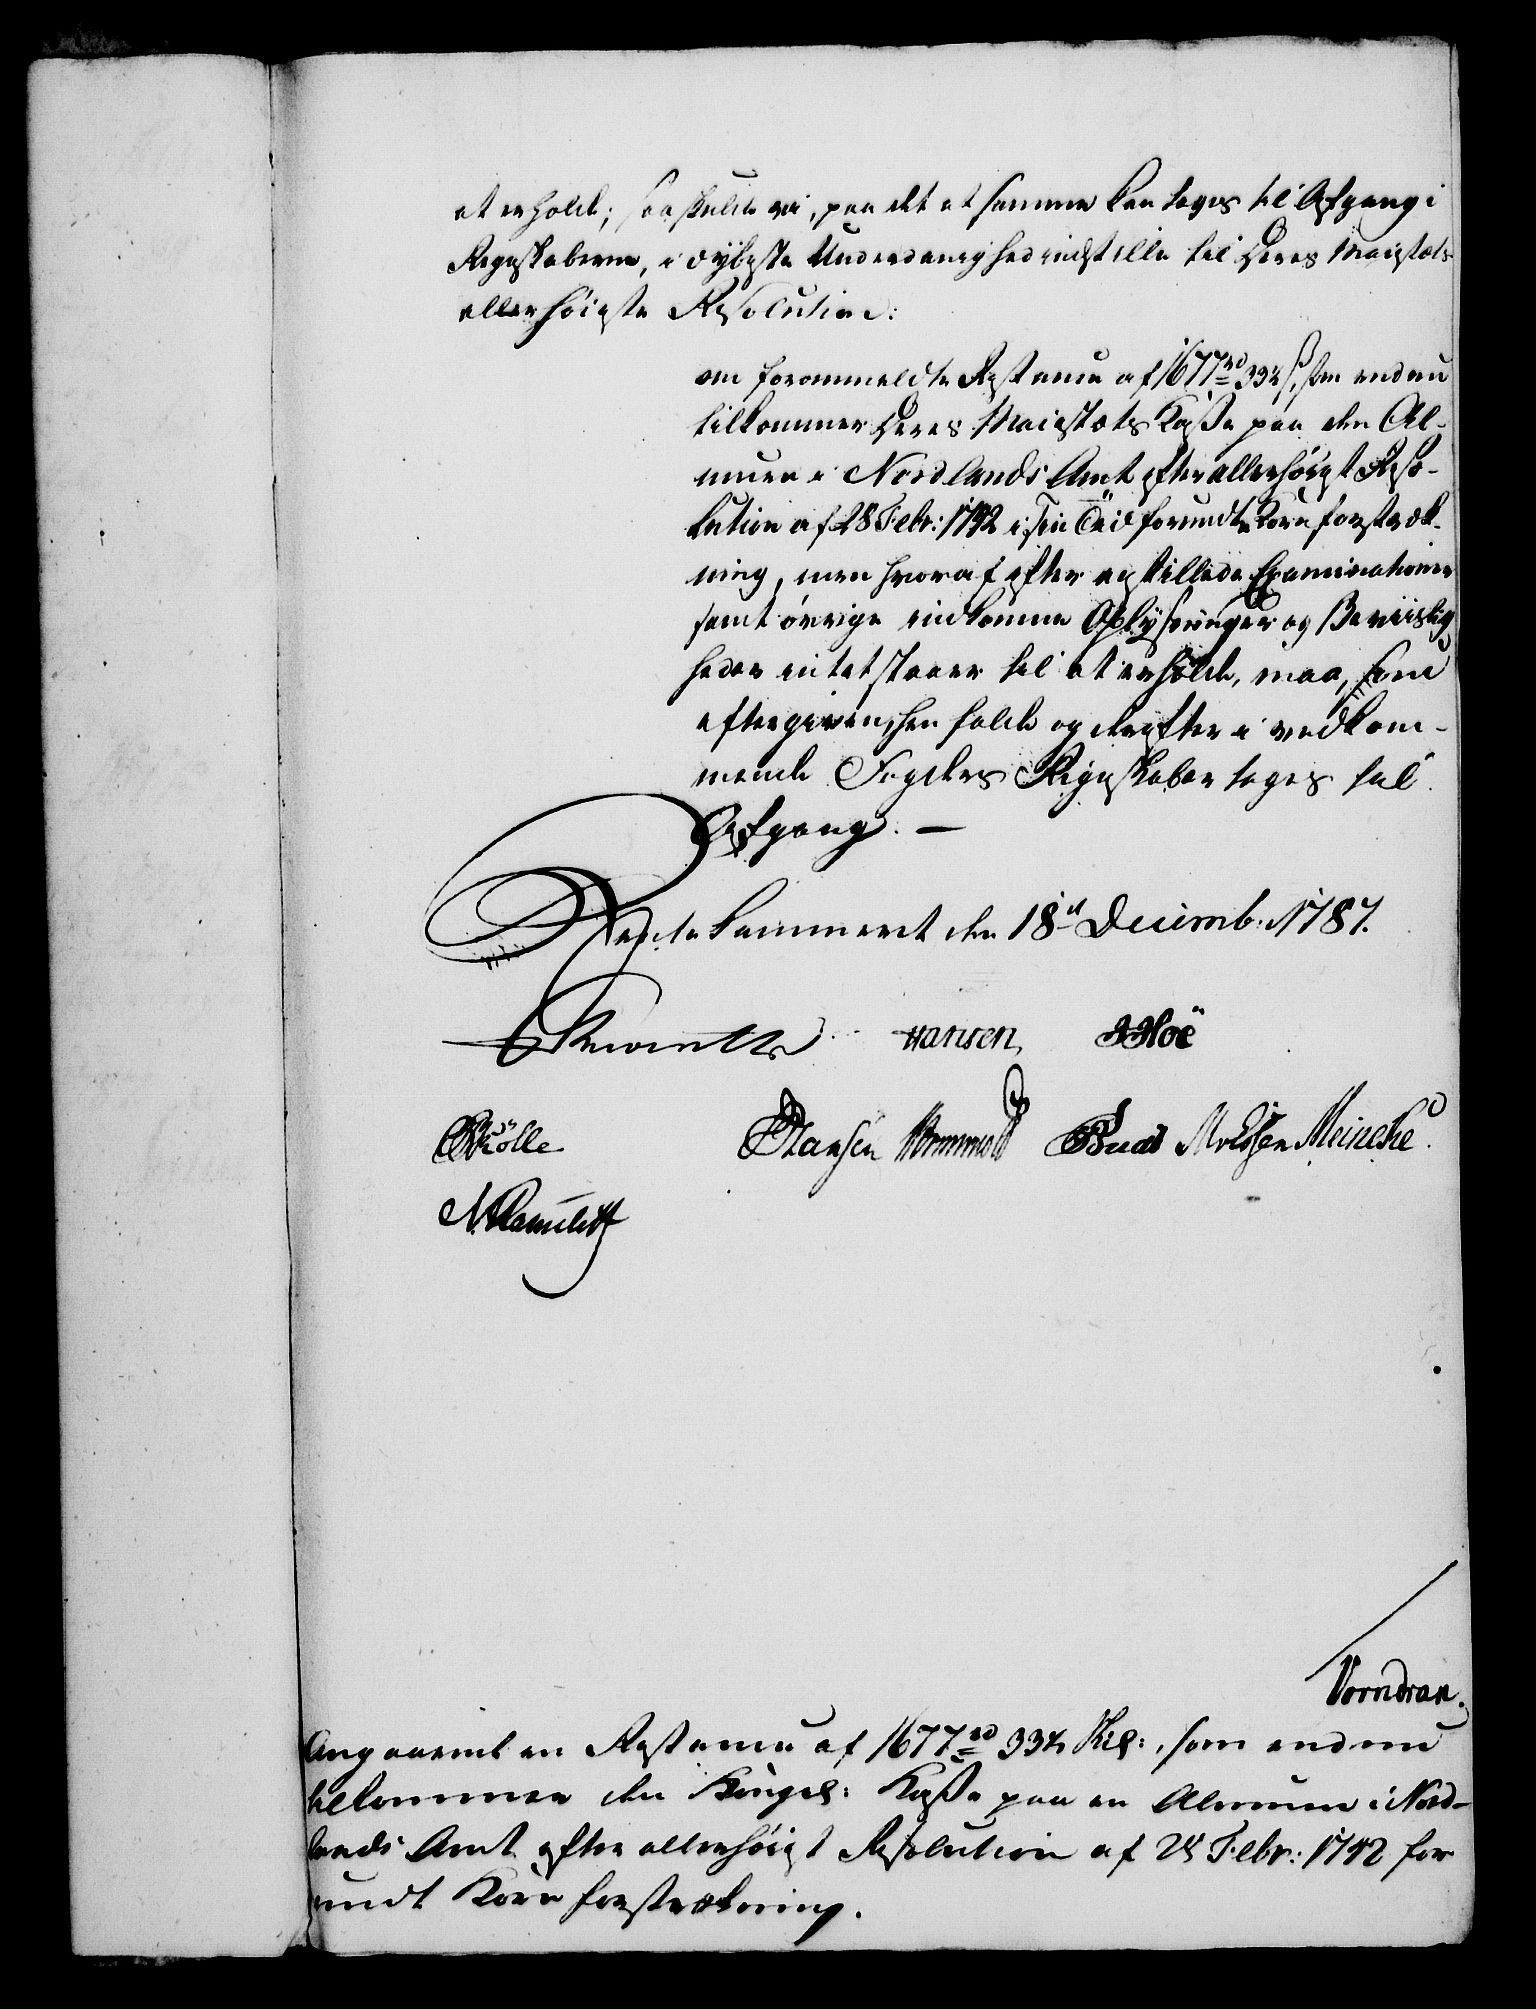 at erholde; saa skulde vi, paa det at samme kan tages til Afgang i
Regnskaberne, i dybeste Underdanighed indstille til Deres Maiestæts
allerhöieste Resolution:
om forommeldte Restance af 1677 rd 33½ s, som endnu
tilkommer Deres Maiestæts Kasse paa den Al-
muen i Nordlands Amt efter allerhöiest Reso-
lution af 28 Febr: 1742 i sin Tiid forundte Korn forstræk-
ning, men hvoraf efter anstillede Examinationer
samt övrige indkomne Oplysninger og Beviislig-
heder intet staaer til at erholde, maa, som
eftergiven, hen falde og derefter i vedkom-
mende Fogders Regnskaber tages til
Afgang. —
Rente Kammeret den 18de Decemb: 1787.
Hansen
Müller
Hansen Wormskiold Meineke.
Vorndran.
Angaaende en Restance af 1677 rd 33½ s, som endnu
tilkommer den Kongel: Kasse paa en Almuen i Nord-
lands Amt efter allerhöiest Resolution af 28 Febr: 1742 for
undt Korn forstrækning.